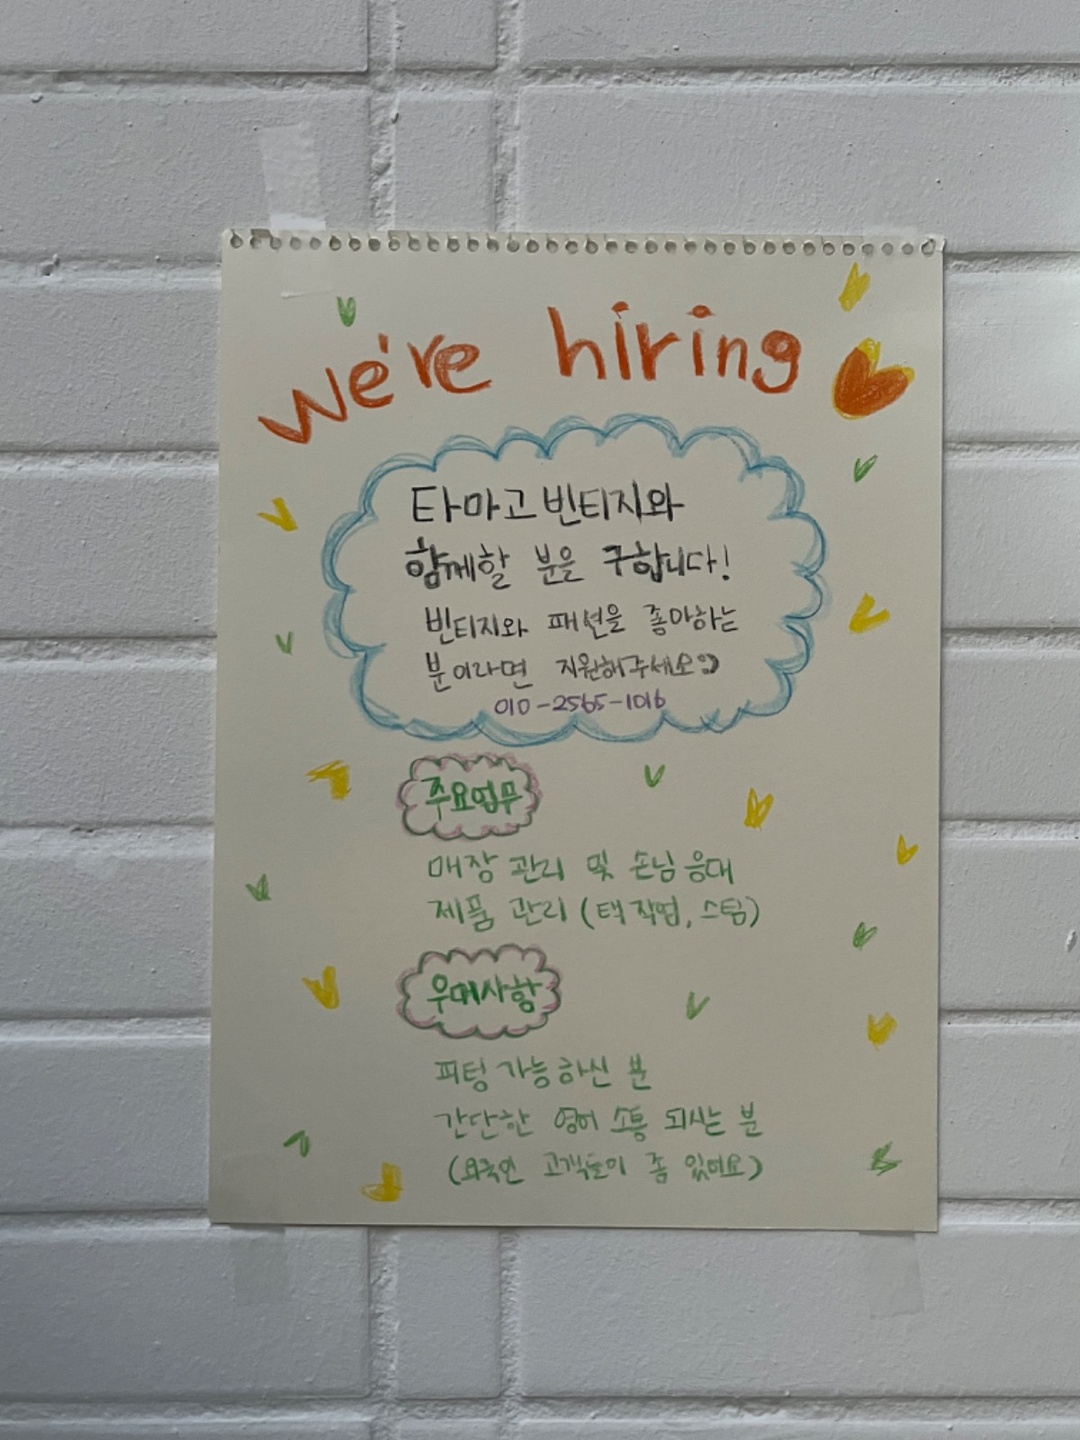 we're hiring
타마고 빈티지와
함께할 분을 구합니다!
빈티지와 패션을 좋아하는
분이라면 지원해주세요:)
010-2565-1016
주요업무
매장 관리 및 손님 응대
제품 관리 (택 작업, 스팀)
우대사항
피팅 가능하신 분
간단한 영어 소통 되시는 분
(외국인 고객들이 좀 있어요)